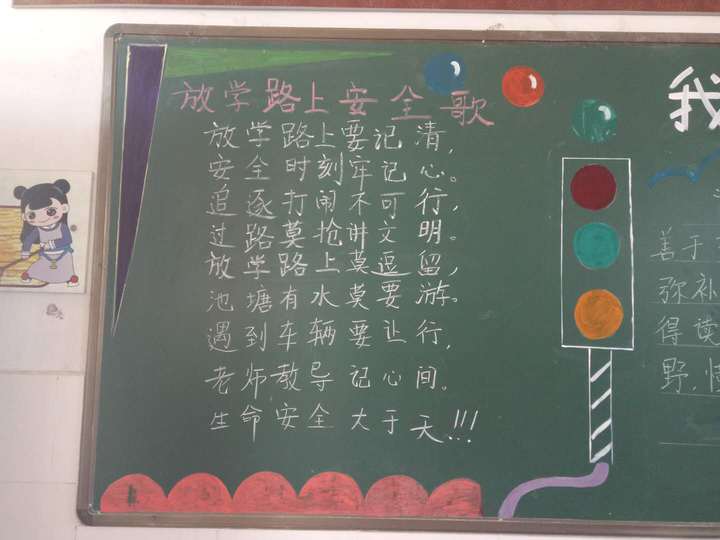 放学路上安全歌
放学路上要记清，
安全时刻牢记心。
追逐打闹不可行，
过路莫抢讲文明。
放学路上莫逗留，
池塘有水莫要游。
遇到车辆要让行，
老师教导记心间。
生命安全大于天!!!
我
善于
弥补
得读
野，情